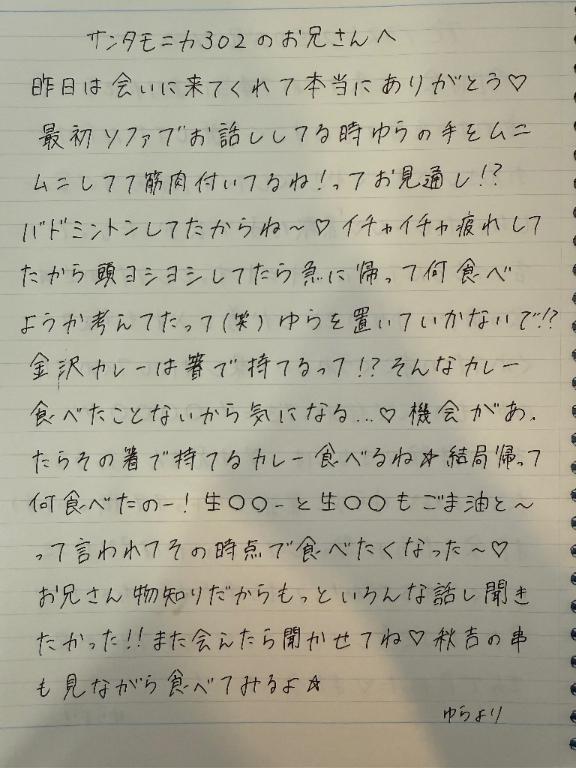 サンタモニカ302のお兄さんへ
昨日は会いに来てくれて本当にありがとう♡
最初ソファでお話ししてる時ゆらの手をムニ
ムニしてて筋肉付いてるね!ってお見通し!?
バドミントンしてたからね～♡イチャイチャ疲れして
たから頭ヨシヨシしてたら急に帰って何食べ
ようか考えてたって(笑)ゆらを置いていかないで!?
金沢カレーは箸で持てるって!?そんなカレー
食べたことないから気になる...♡機会があ、
たらその箸で持てるカレー食べるね☆結局帰って
何食べたのー!生〇〇ーと生〇〇もごま油と～
って言われてその時点で食べたくなった～♡
お兄さん物知りだからもっといろんな話し聞き
たかった!!また会えたら聞かせてね♡秋吉の串
も見ながら食べてみるよ☆
ゆらより